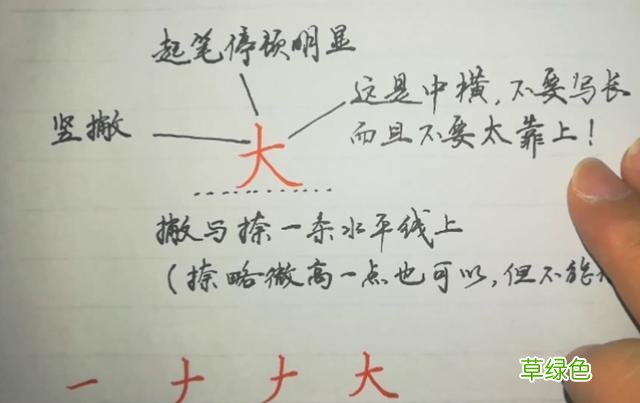 起笔停顿明显
竖撇
这是中横,不要写长
而且不要太靠上!
大
撇与捺一条水平线上
(捺略微高一点也可以,但不能
一 ナ ナ 大
草绿色